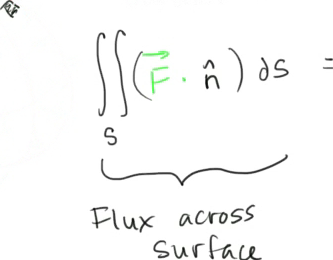 ∬(F⃗ · n̂) ds =
S
Flux across
surface